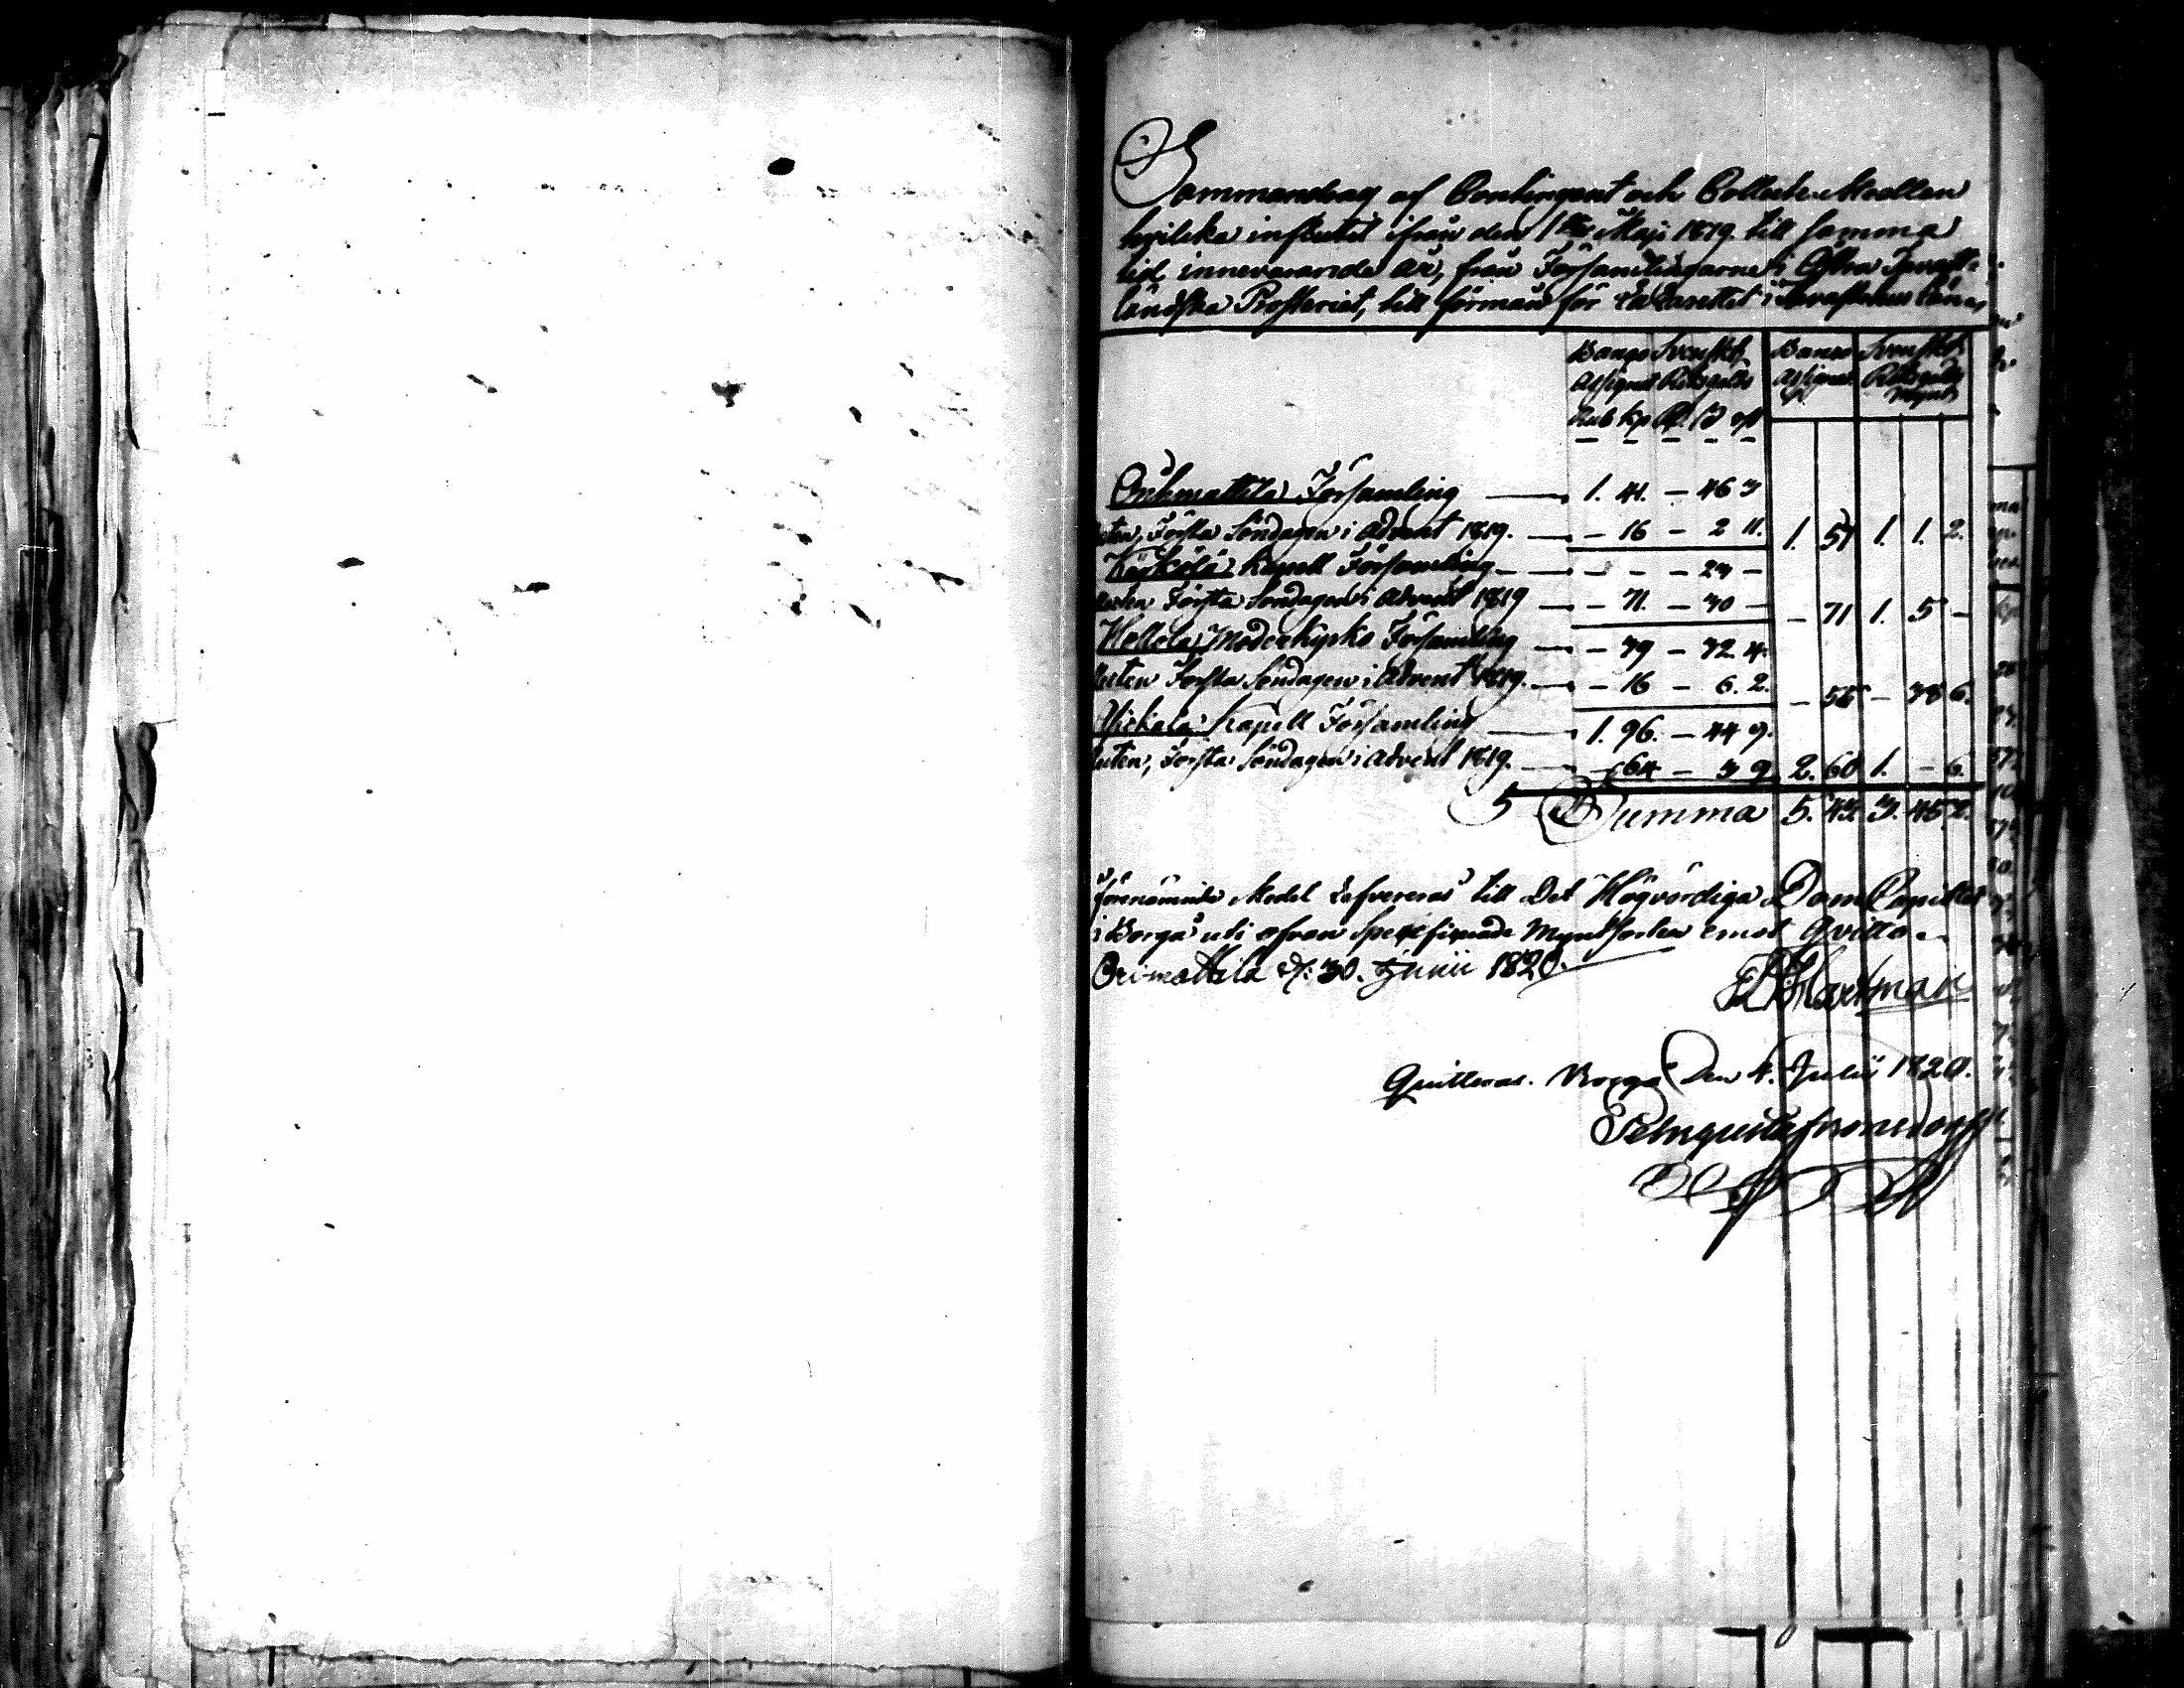 Sammandrag af Contingent och Collecte Medlen
hvilcka influtit ifrån den 1sta Maji 1819. till samma
tid innevarande år, från Församlingarne i Östra Tavast-
ländska Prosteriet, till förmån för Lazarettet i Tavastehus Län.
Banco Svenskt Banco Svenskt
Assignat Riksgälds Assignat Riksgälds
Mynt
Rub kp R. ß
Orimattila Församling 1. 41. – 46 3
Första Söndagen i Advent 1819. – 16 – 2 11. 1. 57 1. 1. 2.
Kärkölä Kapell Församling – – – 23 –
Första Söndagen i Advent 1819 – 71. – 30 – – 71 1. 5 –
Hollola Moderkyrko Församling – 39 – 32. 4.
Första Söndagen i Advent 1819. – 16 – 6. 2. – 55 – 38 6.
Kapell Församling 1. 96. – 44 9.
Första Söndagen i Advent 1819. – 64 – 3 9 2. 60 1. – 6.
Summa 5. 43. 3. 45 2.
Förenämnde Medel Lefvereras till Det Högvördiga Dom Capitlet
i Borgå uti ofvan Specificerade Myntsorter emot Qvitto.
Orimattila d. 30. Junii 1820.
Hartman
Quitteras. Borgå Den 4. Julii 1820.